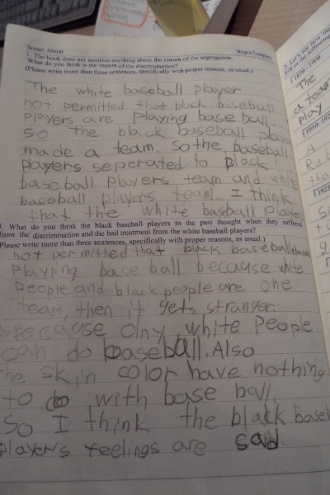 Smarts About
Negro Leagues
1. The book does not mention anything about the reason of the segregation.
What do you think is the reason of the discrimination?
(Please write more than three sentences, specifically with proper reasons, as usual.)
The white baseball player
not permitted that black baseball
players are playing base ball
so the black baseball
made a team. So the baseball
players seperated to black
baseball players team and white
baseball players team. I think
that the white baseball Player
. What do you think the black baseball players in the past thought when they suffered
from the discrimination and the bad treatment from the white baseball players?
Please write more than three sentences, specifically with proper reasons, as usual.)
not permitted that black baseball
Playying base ball because white
People and black people are one
team, then it gets stranger
Because olny white People
can do baseball. Also
he skin color have nothing
to do with base ball.
So I think the black baseb
players feelings are sad.
The
a team
play